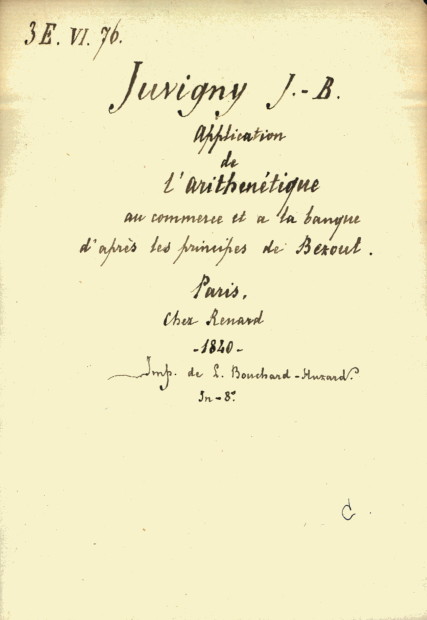 3E. VI. 76.
Juvigny J.-B.
Application
de
l'arithenétique
au commerce et a la banque
d'après les principes de Bezout.
Paris,
Chez Renard
-1840-
Imp. de L. Bouchard-Huzard.
In-8º
C